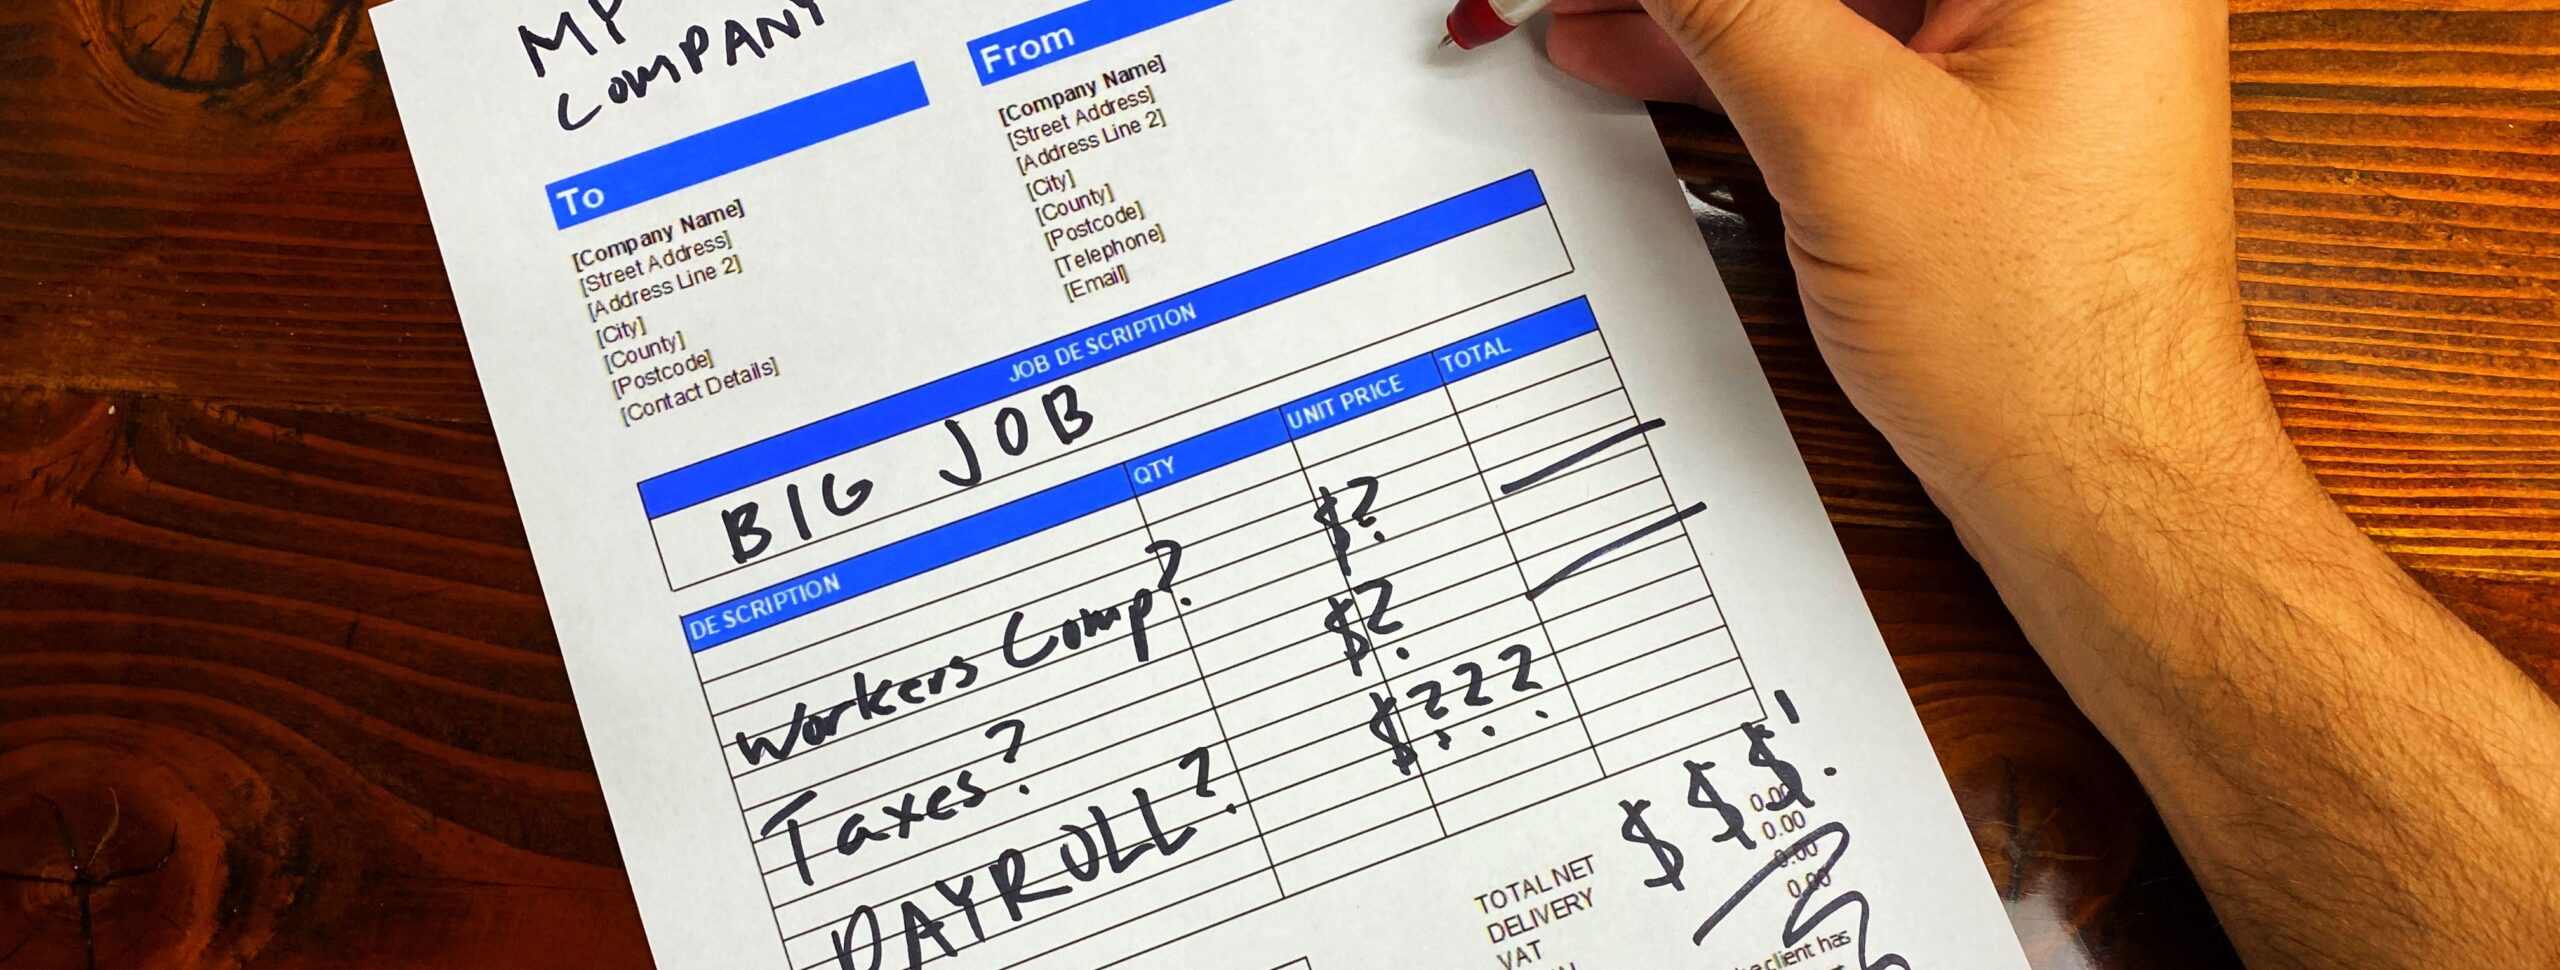 MY
COMPANY
To
[Company Name]
[Street Address]
[Address Line 2]
[City]
[County]
[Postcode]
[Contact Details]
From
[Company Name]
[Street Address]
[Address Line 2]
[City]
[County]
[Postcode]
[Telephone]
[Email]
JOB DESCRIPTION
BIG JOB
DESCRIPTION QTY UNIT PRICE TOTAL
Workers Comp? $?
Taxes? $?
PAYROLL? $???
$$$!
TOTAL NET 0.00
DELIVERY 0.00
VAT 0.00
0.00
client has